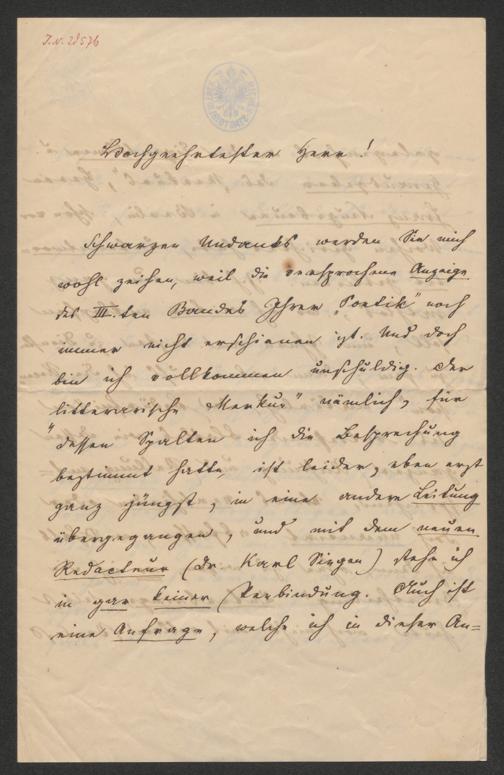 I.N. 28576
Hochgeehrtester Herr!
Schwarzen Undanks werden Sie mich
wohl zeihen, weil die versprochene Anzeige
des III.ten Bandes Ihrer „Poetik" noch
immer nicht erschienen ist. Und doch
bin ich vollkommen unschuldig. Der
litterarische Merkur" nämlich, für
"dessen Spalten ich die Besprechung
bestimmt hatte, ist leider, eben erst
ganz jüngst, in eine andere Leitung
übergegangen, und mit dem neuen
Redacteur (Dr. Karl Siegen) stehe ich
in gar keiner Verbindung. Auch ist
eine Anfrage, welche ich in dieser An=